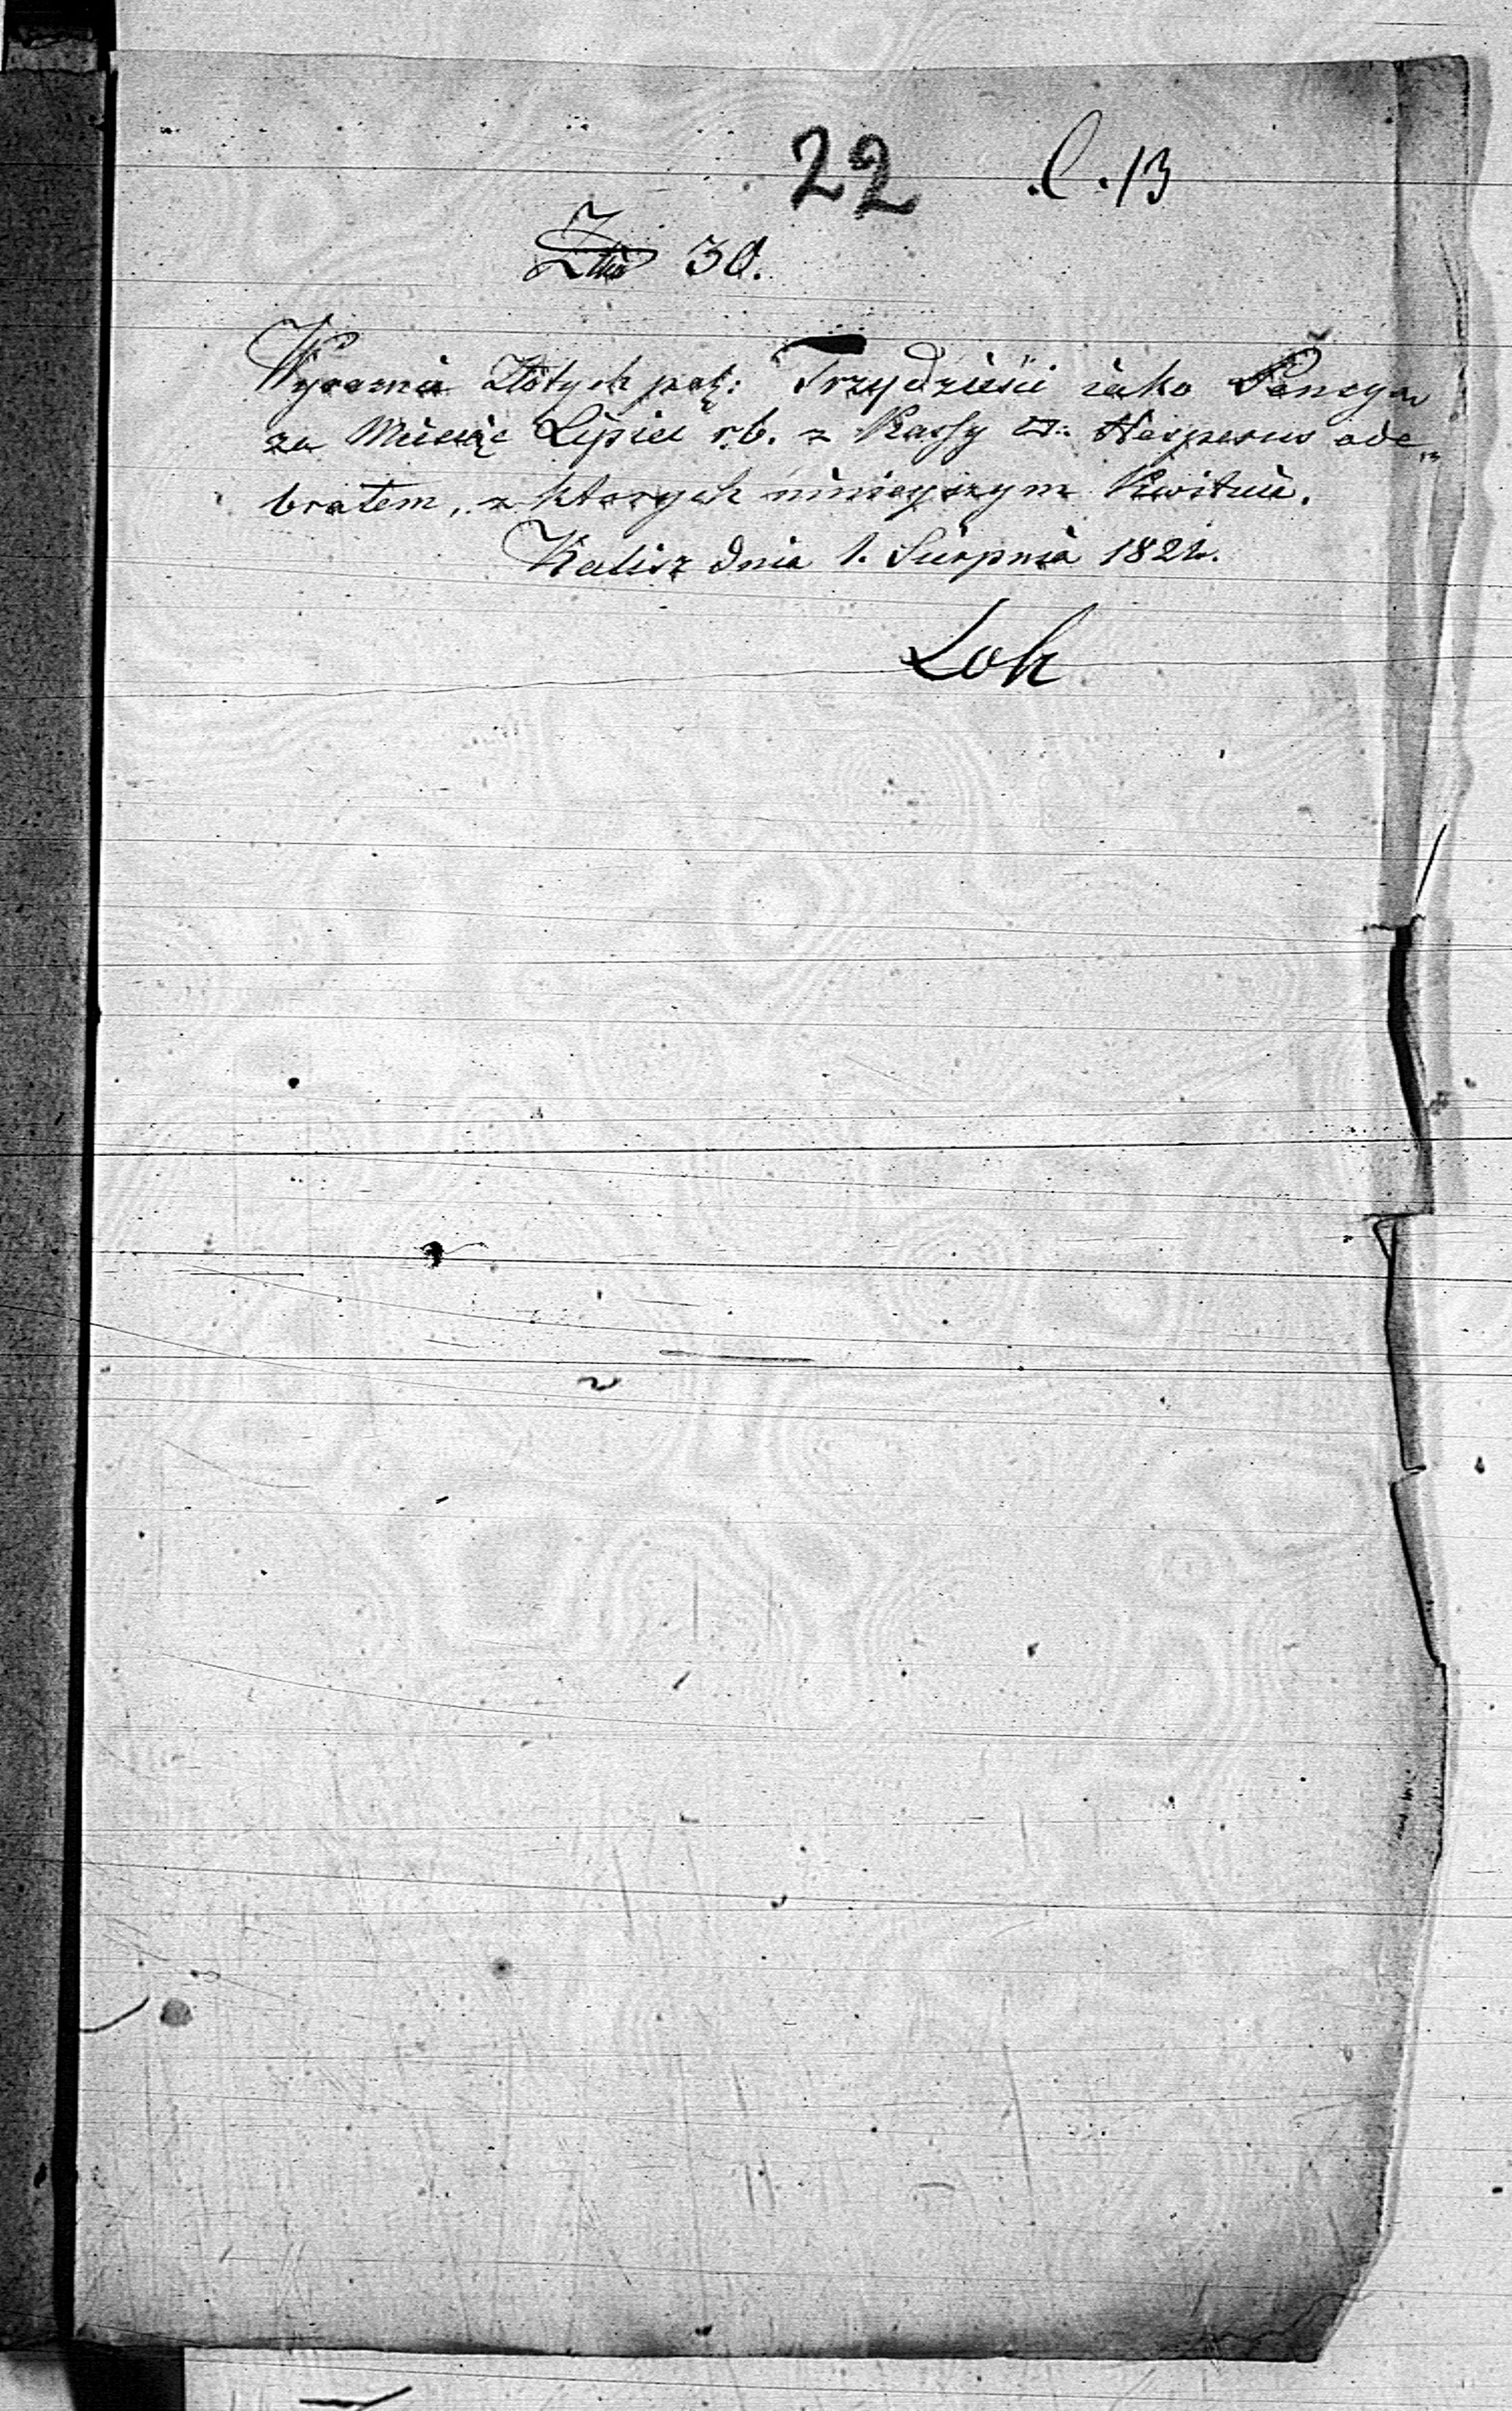 22 l. 13
30.
Wyraznie Złotych pol: Trzydzieści iako Pensyą
za Miesiąc Lipiec r.b. z Kassy □: Hesperus ode„
brałem, z ktorych ninieyszym Kwituie.
Kalisz dnia 1. Sierpnia 1821.
Loh